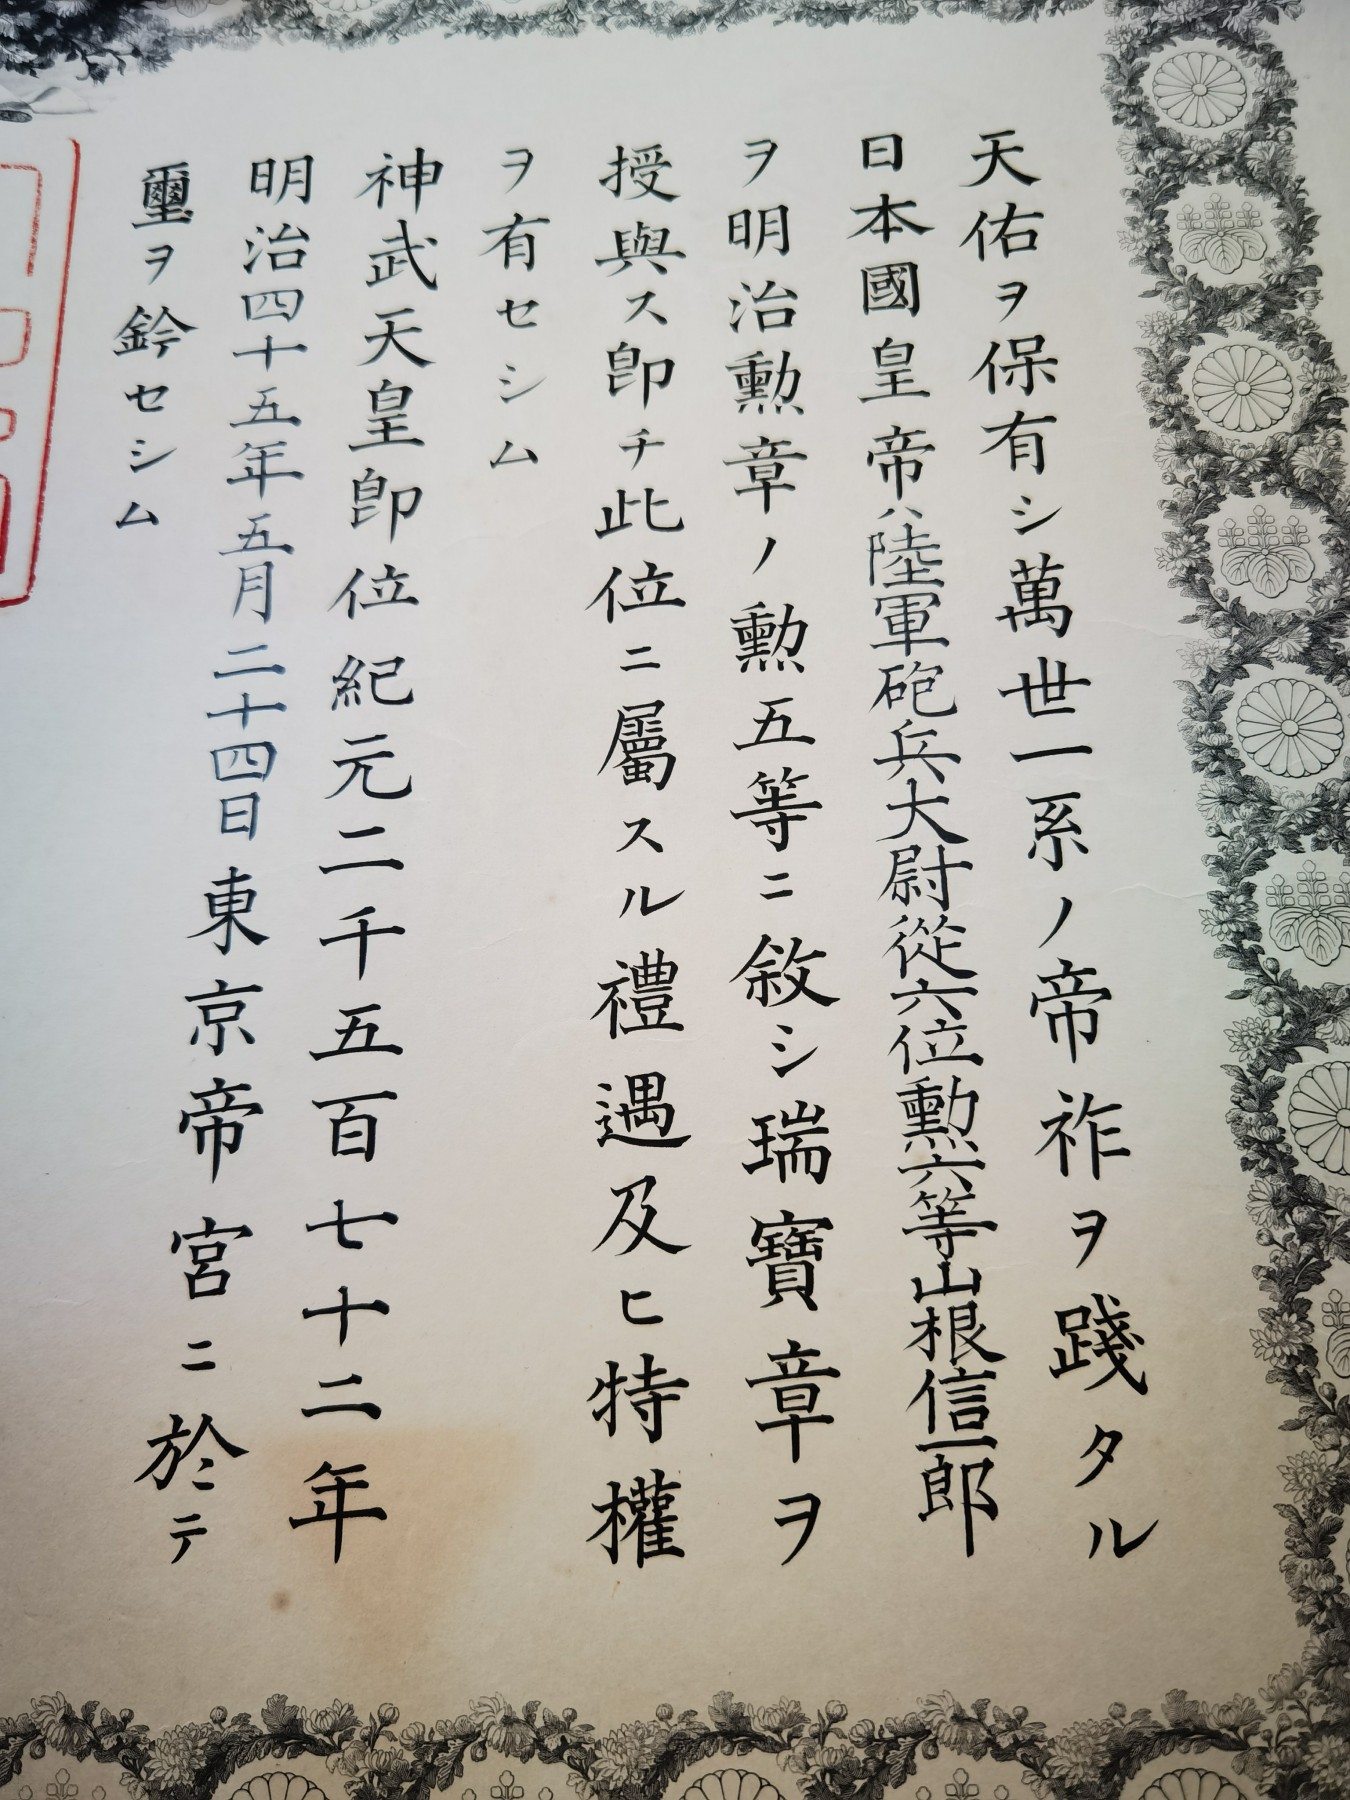 天佑ヲ保有シ萬世一系ノ帝祚ヲ踐タル
日本國皇帝ハ陸軍砲兵大尉從六位勲六等山根信一郎
ヲ明治勲章ノ勲五等ニ敘シ瑞寶章ヲ
授與ス卽チ此位ニ屬スル禮遇及ヒ特權
ヲ有セシム
神武天皇卽位紀元二千五百七十二年
明治四十五年五月二十四日東京帝宮ニ於テ
璽ヲ鈐セシム